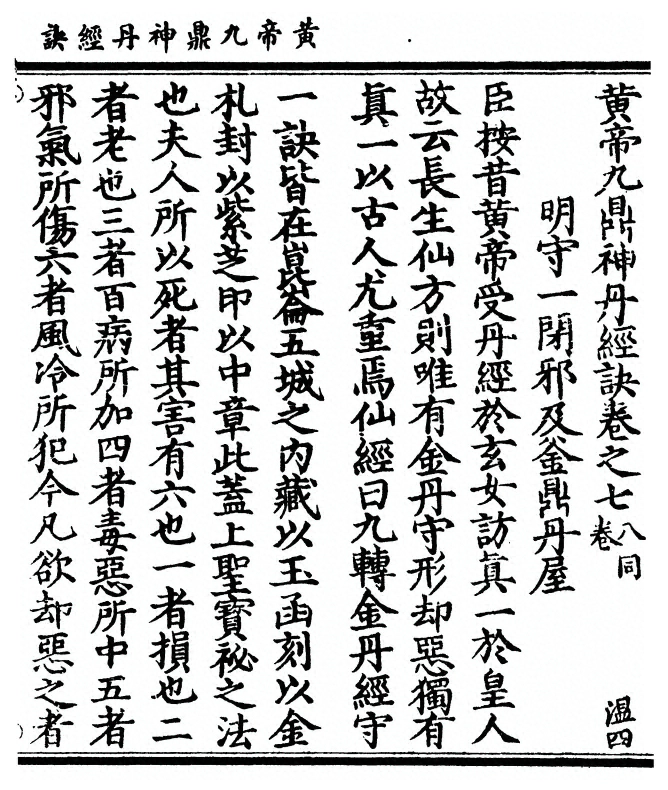 黄帝九鼎神丹經訣
黄帝九鼎神丹經訣卷之七 八同卷 温四
明守一閉邪及釜鼎丹屋
臣按昔黄帝受丹經於玄女訪真一於皇人
故云長生仙方則唯有金丹守形却惡獨有
真一以古人尤重焉仙經曰九轉金丹經守
一訣皆在崑崙五城之内藏以玉函刻以金
札封以紫芝印以中章此蓋上聖寶祕之法
也夫人所以死者其害有六也一者損也二
者老也三者百病所加四者毒惡所中五者
邪氣所傷六者風冷所犯今凡欲却惡之者